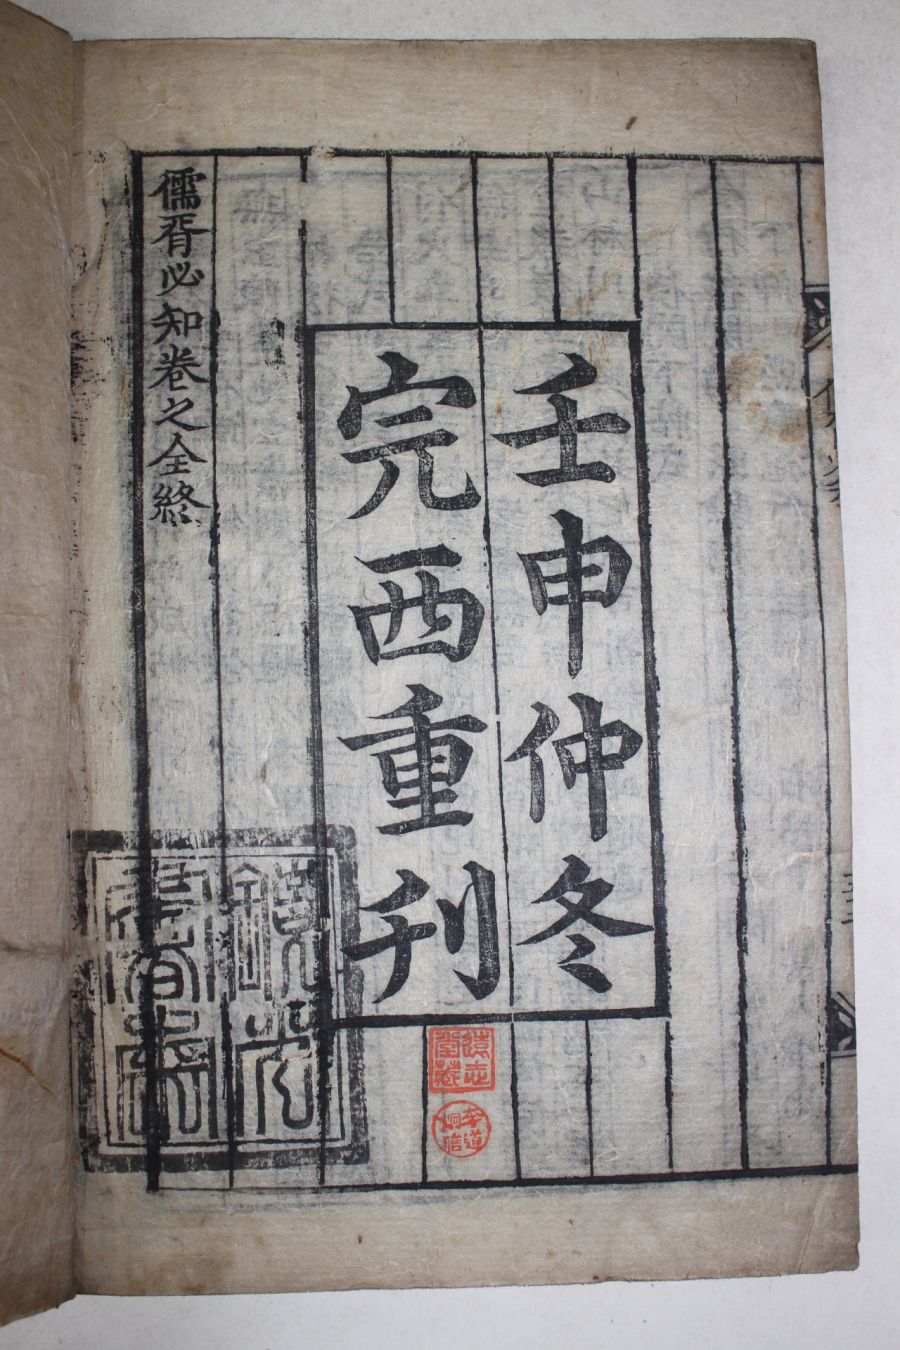 壬申仲冬
完西重刊
儒胥必知卷之全終